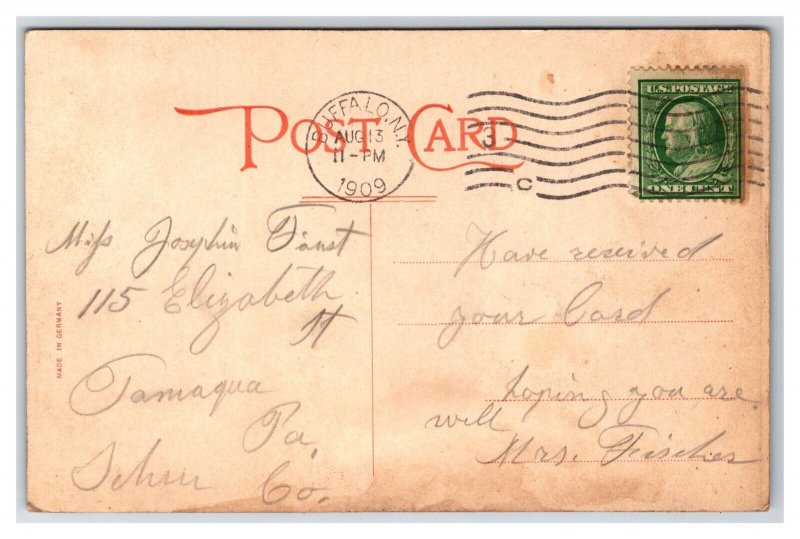 POST CARD
BUFFALO, N.Y.
AUG 13
11-PM
1909
3
C
U.S. POSTAGE
ONE CENT
MADE IN GERMANY
Miss Josephin Faust
115 Elizabeth
St
Tamaqua
Pa.
Schu Co.
Have received
your Card
hoping you are
well
Mrs. Fischer